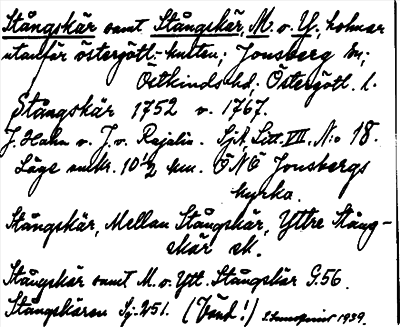 Stångskär samt Stångskär, M. o. Y. holmar
utanför östergötl.-kusten; Jonsberg sn;
Östkinds hd; Östergötl. l.
Stångskär 1752 o. 1767.
J. Hahn o. J. v. Rajalin. Sjk. Litt. VII, N:o 18.
Läge omkr. 10 1/2 km. ÖNÖ Jonsbergs
kyrka.
Stångskär, Mellan Stångskär, Yttre Stång-
skär ek.
Stångskär samt M. o. Ytt. Stångskär G.56.
Stångskären Sj. 251. (Vänd!) 1939.